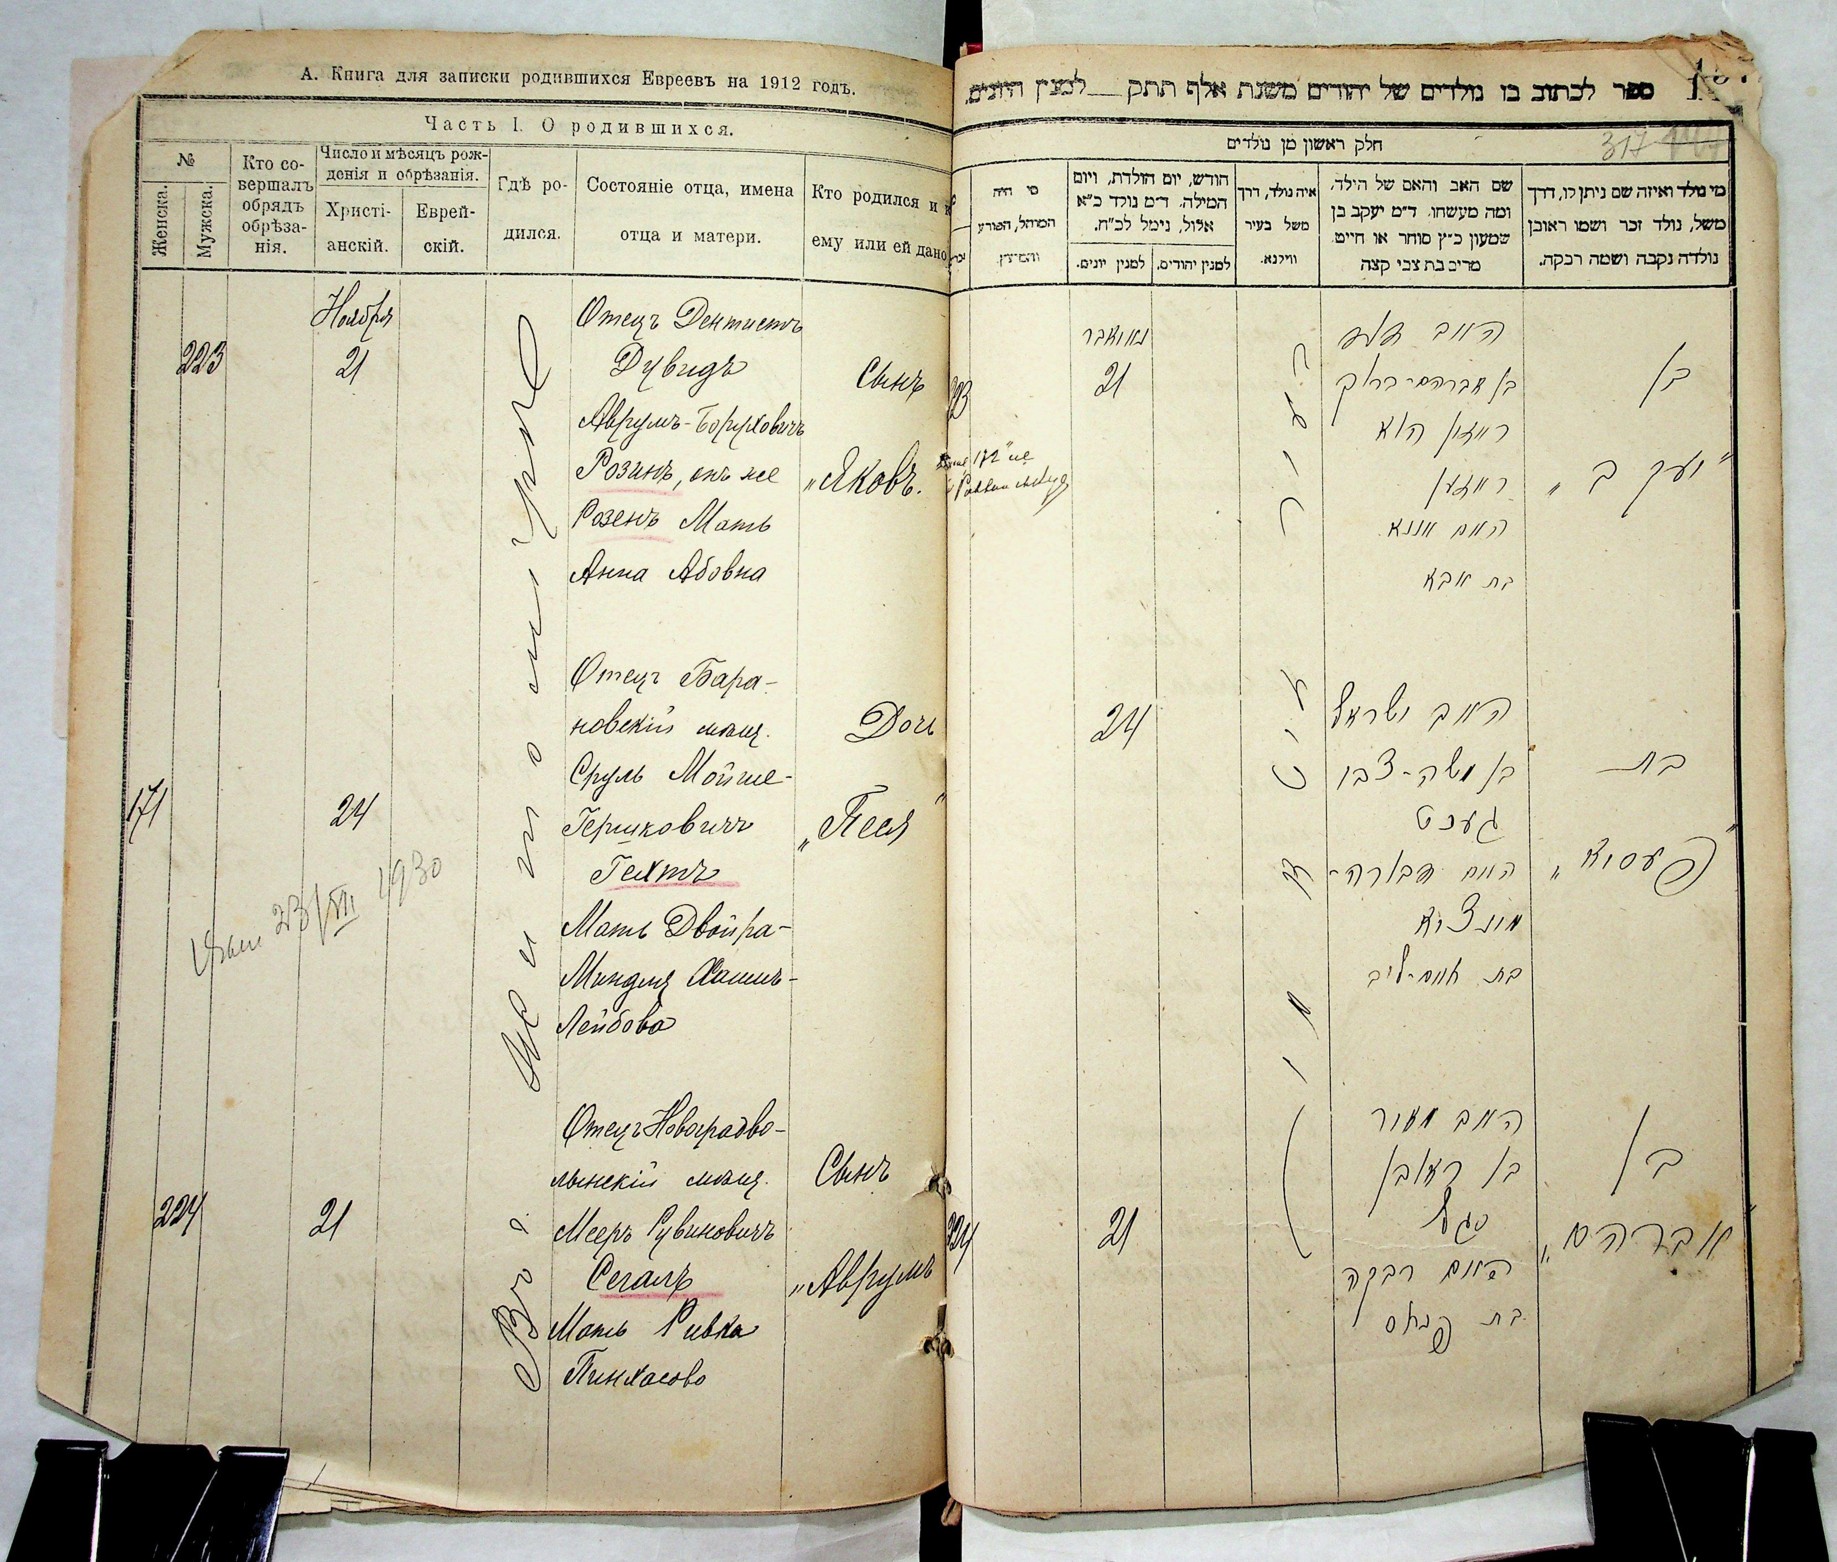 А. Книга для записки родившихся Евреевъ на 1912 годъ.
Часть I. О родившихся.
№
Женска.
Мужска.
Кто со-
вершалъ
обрядъ
обрѣза-
нія.
Число и мѣсяцъ рож-
денія и обрѣзанія.
Христі-
анскій.
Еврей-
скій.
Гдѣ ро-
дился.
Состояніе отца, имена
отца и матери.
Кто родился и к
ему или ей дано
Въ г. Житомирѣ
223
Ноября
21
Отецъ Дентистъ
Дувидъ
Аврумъ-Боруховичъ
Розинъ, онъ же
Розенъ Мать
Анна Абовна
Сынъ
„Яковъ.
171
24
Отецъ Бара-
новскій мѣщ.
Сруль Мойше-
Гершковичъ
Гехтъ
Мать Двойра-
Миндля Хаимъ-
Лейбова
Дочь
„Песя"
23/VII 1930
224
21
Отецъ Новоградво-
лынскій мѣщ.
Мееръ Рувиновичъ
Сегалъ
Мать Ривка
Пинхасова
Сынъ
„Аврумъ
ספר לכתוב בו נולדים של יהודים משנת אלף תתק למנין היונים.
317
חלק ראשון מן נולדים
מי נולד ואיזה שם ניתן לו, דרך
משל, נולד זכר ושמו ראובן
נולדה נקבה ושמה רבקה.
שם האב והאם של הילד,
ומה מעשהו. ד״מ יעקב בן
שמעון כ״ץ סוחר או חייט
מרים בת צבי קצה
איה נולד, דרך
משל בעיר
ווילנא.
חודש, יום הולדת, ויום
המילה. ד״מ נולד כ״א
אלול, נימל לכ״ח.
למנין יהודים.
למנין יונים.
מי היה
המוהל, הפורע
והמוצץ.
223
נאוואבר
21
האב דוד
בן אברהם-ברוך
ראזין הוא
ראזען
האם אננא
בת אבא
בן
„יעקב"
בעיר זיטאמיר
24
האב ישראל
בן משה-צבי
געכט
האם דבורה-
מינדציא
בת חיים-ליב
בת
„פעסיא"
224
21
האב מאיר
בן ראובן
סגל
האם רבקה
בת פנחס
בן
„אברהם"